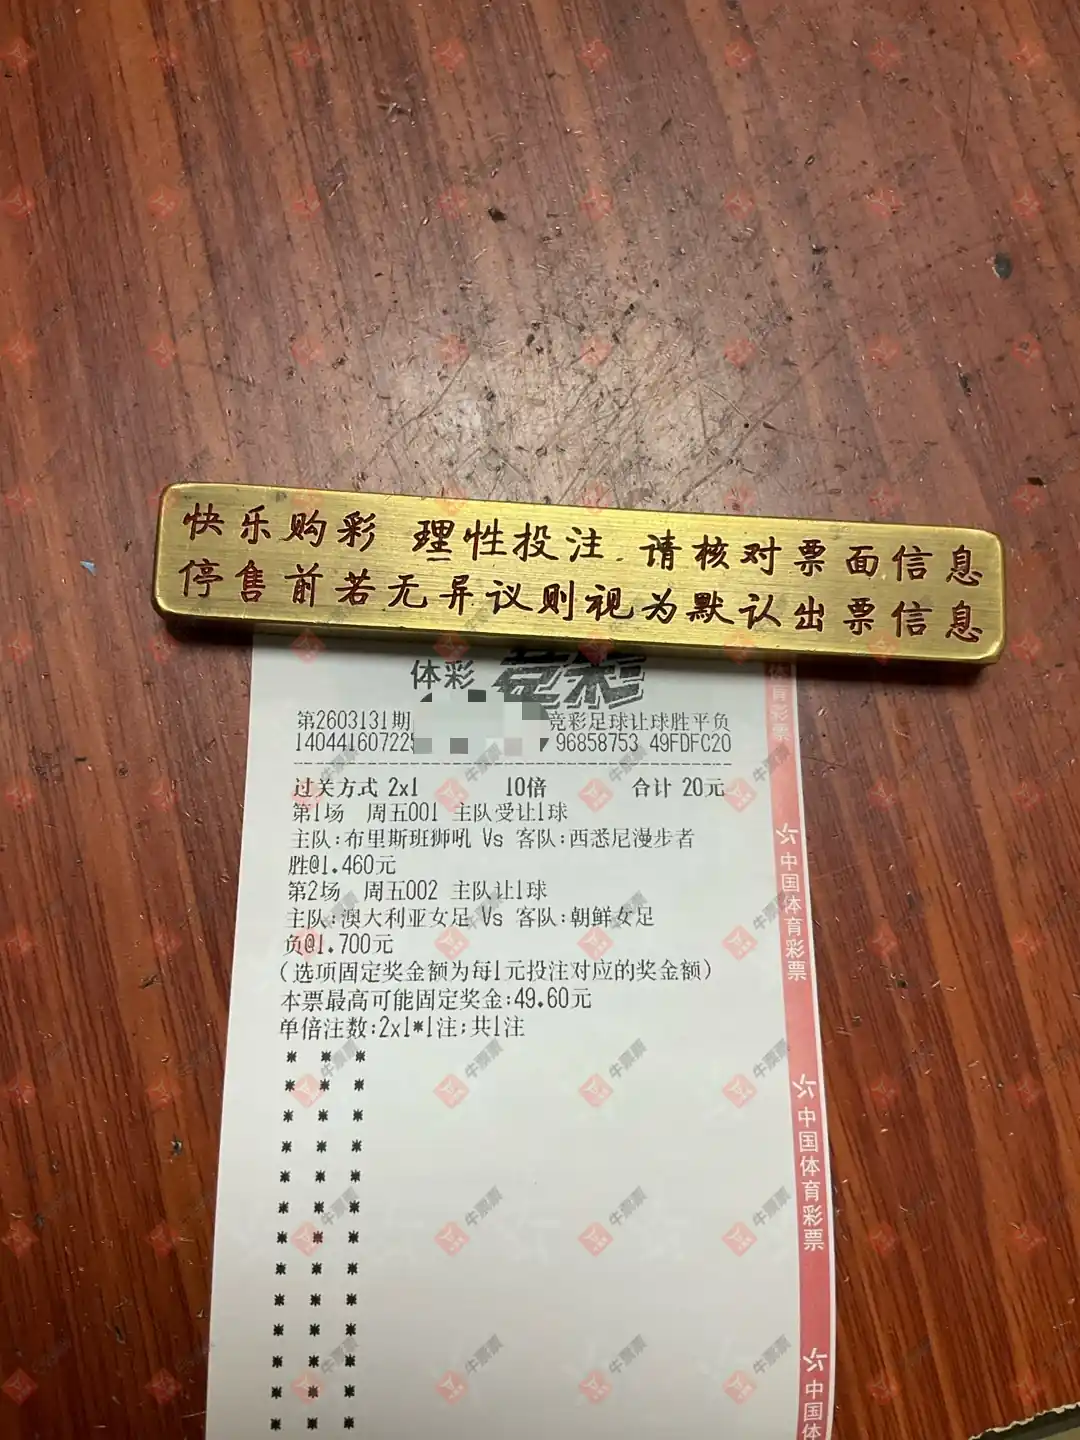 快乐购彩 理性投注 请核对票面信息
停售前若无异议则视为默认出票信息
体彩 竞彩
第2603131期 竞彩足球让球胜平负
14044160722 96858753 49FDFC20
过关方式 2x1 10倍 合计 20元
第1场 周五001 主队受让1球
主队:布里斯班狮吼 Vs 客队:西悉尼漫步者
胜@1.460元
第2场 周五002 主队让1球
主队:澳大利亚女足 Vs 客队:朝鲜女足
负@1.700元
(选项固定奖金额为每1元投注对应的奖金额)
本票最高可能固定奖金:49.60元
单倍注数:2x1*1注;共1注
育彩票
中国体育彩票
中国体育彩票
中国体
牛票票